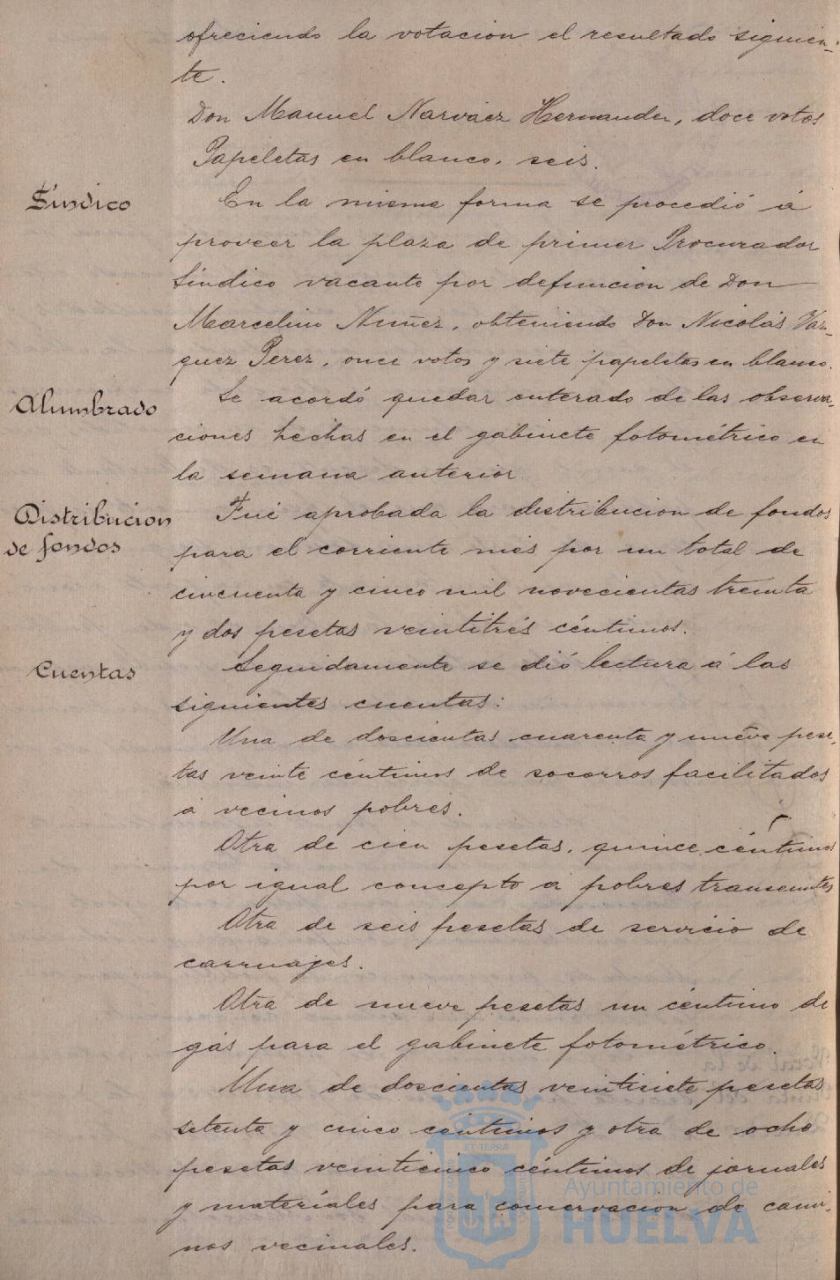 ofreciendo la votacion el resultado siguien-
te.
Don Manuel Narváez Hernandez, doce votos
Papeletas en blanco, seis.
Síndico
En la misma forma se procedió á
proveer la plaza de primer Procurador
Síndico vacante por defuncion de Don
Marcelino Nuñez, obteniendo Don Nicolás Váz-
quez Perez, once votos y siete papeletas en blanco.
Alumbrado
Se acordó quedar enterado de las observa-
ciones hechas en el gabinete fotométrico en
la semana anterior
Distribucion
de fondos
Fué aprobada la distribucion de fondos
para el corriente mes por un total de
cincuenta y cinco mil novecientas treinta
y dos pesetas veintitrés céntimos.
Cuentas
Seguidamente se dió lectura á las
siguientes cuentas:
Una de doscientas cuarenta y nueve pese-
tas veinte céntimos de socorros facilitados
á vecinos pobres.
Otra de cien pesetas, quince céntimos
por igual concepto a pobres transeuntes
Otra de seis pesetas de servicio de
carruajes.
Otra de nueve pesetas un céntimo de
gás para el gabinete fotométrico.
Una de doscientas veintisiete pesetas
setenta y cinco céntimos y otra de ocho
pesetas veinticinco céntimos de jornales
y materiales para conservacion de cami-
nos vecinales.
Ayuntamiento de
HUELVA